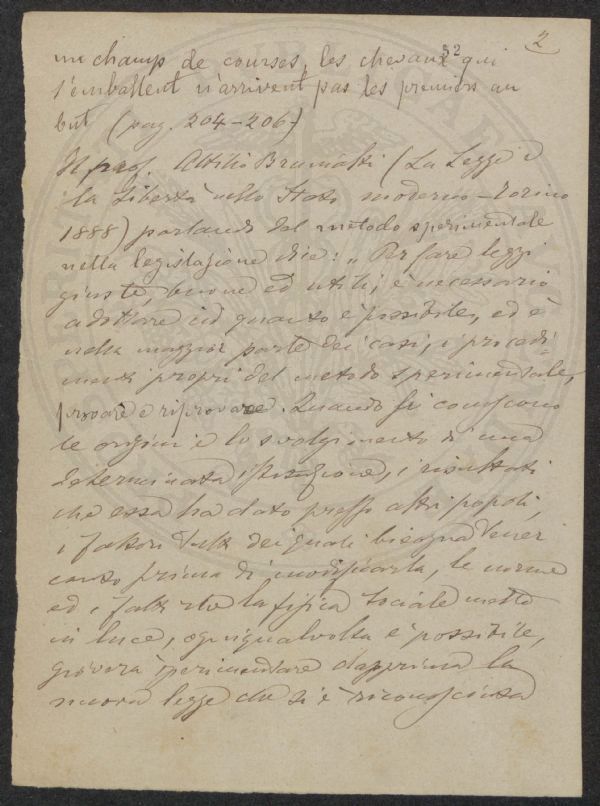 2
52
un champ de courses, les chevaux qui
s'emballent n'arrivent pas les premiers au
but (pag. 204-206)
Il prof. Attilio Brunialti (La Legge e
la Libertà nello Stato moderno - Torino
1888) parlando del metodo sperimentale
nella legislazione dice: „ Per fare leggi
giuste, buone ed utili, è necessario
adottare in quanto è possibile, ed è
nella maggior parte dei casi, i procedi-
menti propri del metodo sperimentale,
provare e riprovare. Quando si conoscono
le origini e lo svolgimento di una
determinata istituzione, i risultati
che essa ha dato presso altri popoli,
i fattori tutti dei quali bisogna tener
conto prima di modificarla, le norme
ed i fatti che la fisica sociale mette
in luce, ogniqualvolta è possibile,
gioverà sperimentare dapprima la
nuova legge che si è riconosciuta